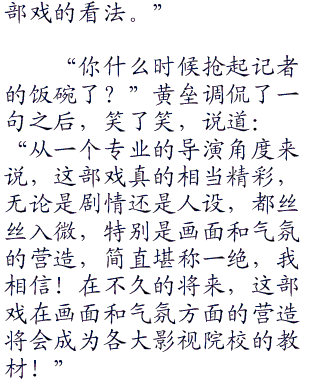 部戏的看法。”
“你什么时候抢起记者
的饭碗了？”黄垒调侃了一
句之后，笑了笑，说道：
“从一个专业的导演角度来
说，这部戏真的相当精彩，
无论是剧情还是人设，都丝
丝入微，特别是画面和气氛
的营造，简直堪称一绝，我
相信！在不久的将来，这部
戏在画面和气氛方面的营造
将会成为各大影视院校的教
材！”